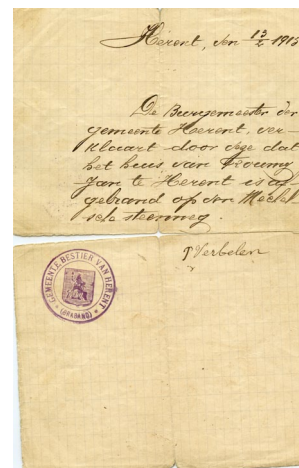 Herent, den 13/2 1915
De Burgemeester der
gemeente Herent, ver-
klaart door deze dat
het huis van
Jan te Herent is af-
gebrand op den Mechel
sche steenweg.
J Verbelen
GEMEENTE BESTIER VAN HERENT
(BRABAND)